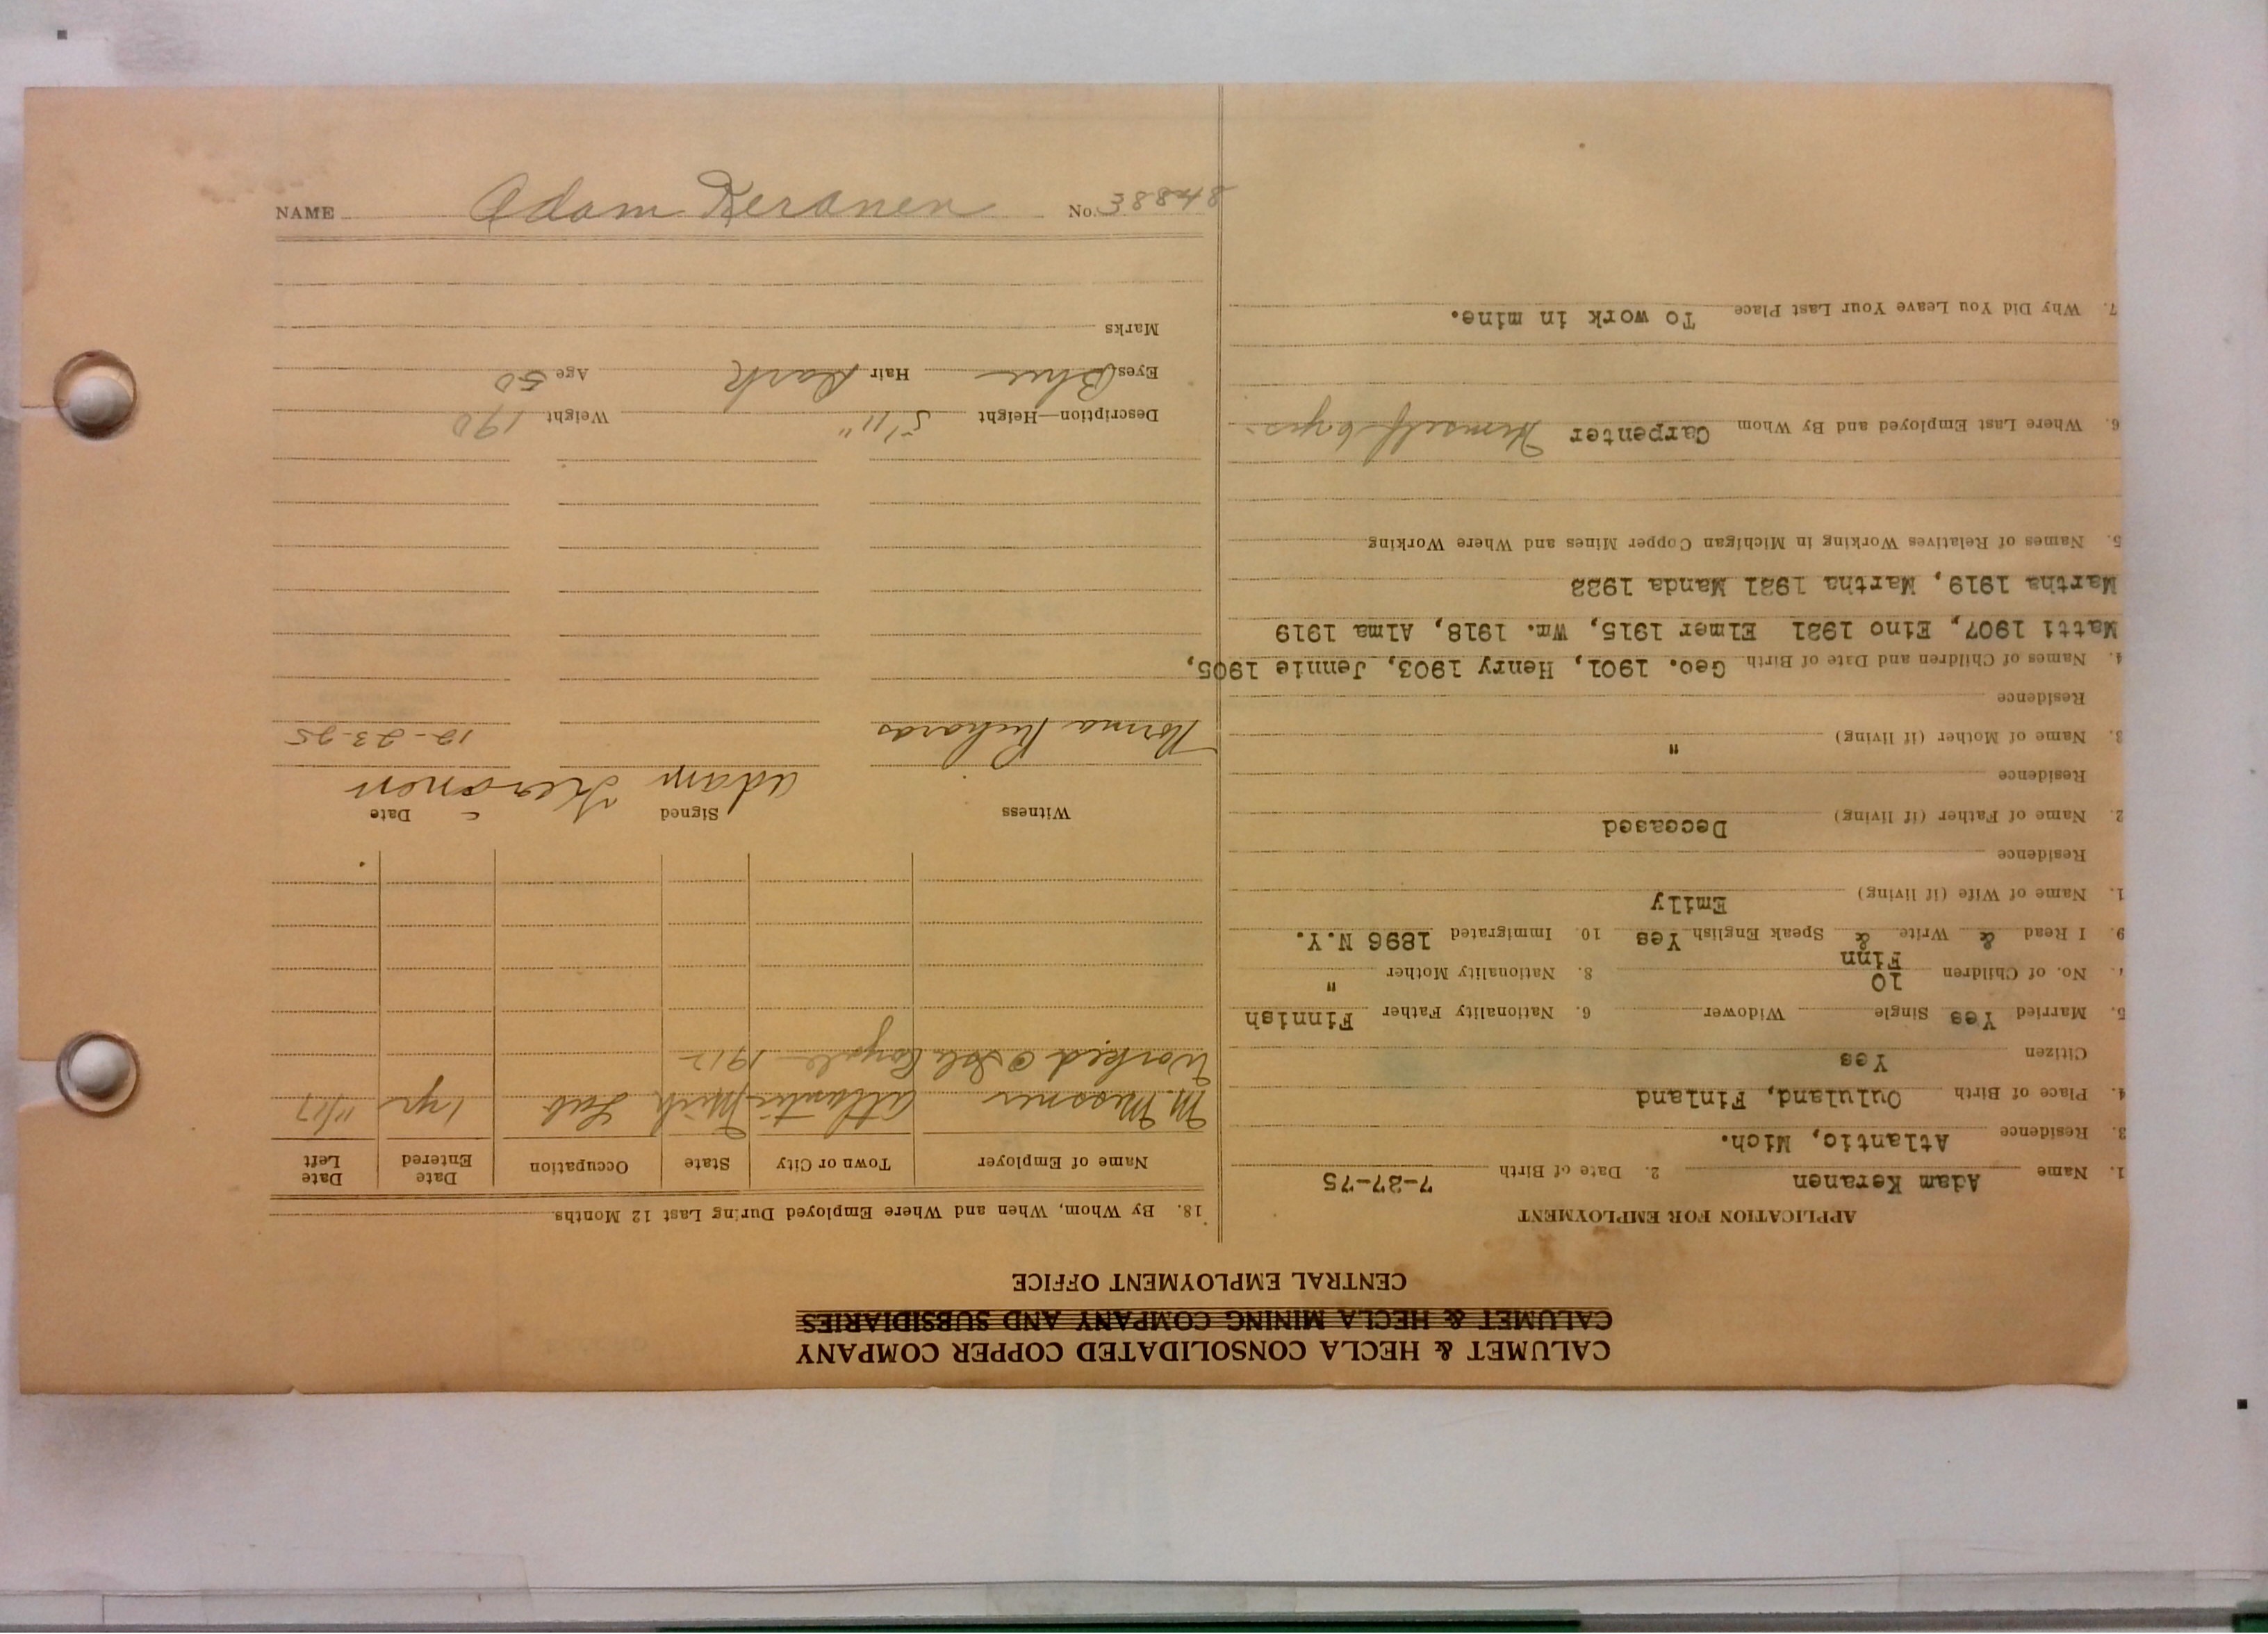 CALUMET & HECLA CONSOLIDATED COPPER COMPANY
CALUMET & HECLA MINING COMPANY AND SUBSIDIARIES
CENTRAL EMPLOYMENT OFFICE
APPLICATION FOR EMPLOYMENT
1. Name Adam Keranen 2. Date of Birth 7-27-75
3. Residence Atlantic, Mich.
4. Place of Birth Oululand, Finland
Citizen Yes
5. Married Yes Single Widower 6. Nationality Father Finnish
7. No. of Children 10 8. Nationality Mother "
Finn
9. I Read & Write & Speak English Yes 10. Immigrated 1896 N.Y.
1. Name of Wife (if living) Emily
Residence
2. Name of Father (if living) Deceased
Residence
3. Name of Mother (if living) "
Residence
4. Names of Children and Date of Birth Geo. 1901, Henry 1903, Jennie 1905,
Matti 1907, Eino 1921 Elmer 1915, Wm. 1918, Alma 1919
Martha 1919, Martha 1921 Manda 1922
5. Names of Relatives Working in Michigan Copper Mines and Where Working
6. Where Last Employed and By Whom Carpenter Himself 6 yrs.
7. Why Did You Leave Your Last Place To work in mine.
18. By Whom, When and Where Employed During Last 12 Months
Name of Employer Town or City State Occupation Date Entered Date Left
M. Messner Atlantic Mich Lab 1 yr 11/17
Worked @ Isle Royale 1912
Witness Signed Date
Adam Keranen
Norma Richards 12-23-25
Description—Height 5'11" Weight 190
Eyes Blue Hair Dark Age 50
Marks
NAME Adam Keranen No. 38848